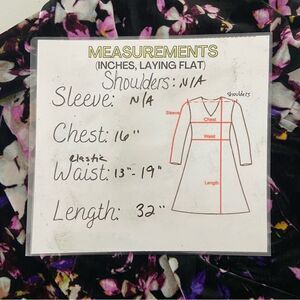 MEASUREMENTS
(INCHES, LAYING FLAT)
Shoulders: N/A
Sleeve: N/A
Chest: 16"
elastic
Waist: 13"- 19"
Length: 32"
Shoulders
Sleeve
Chest
Waist
Length